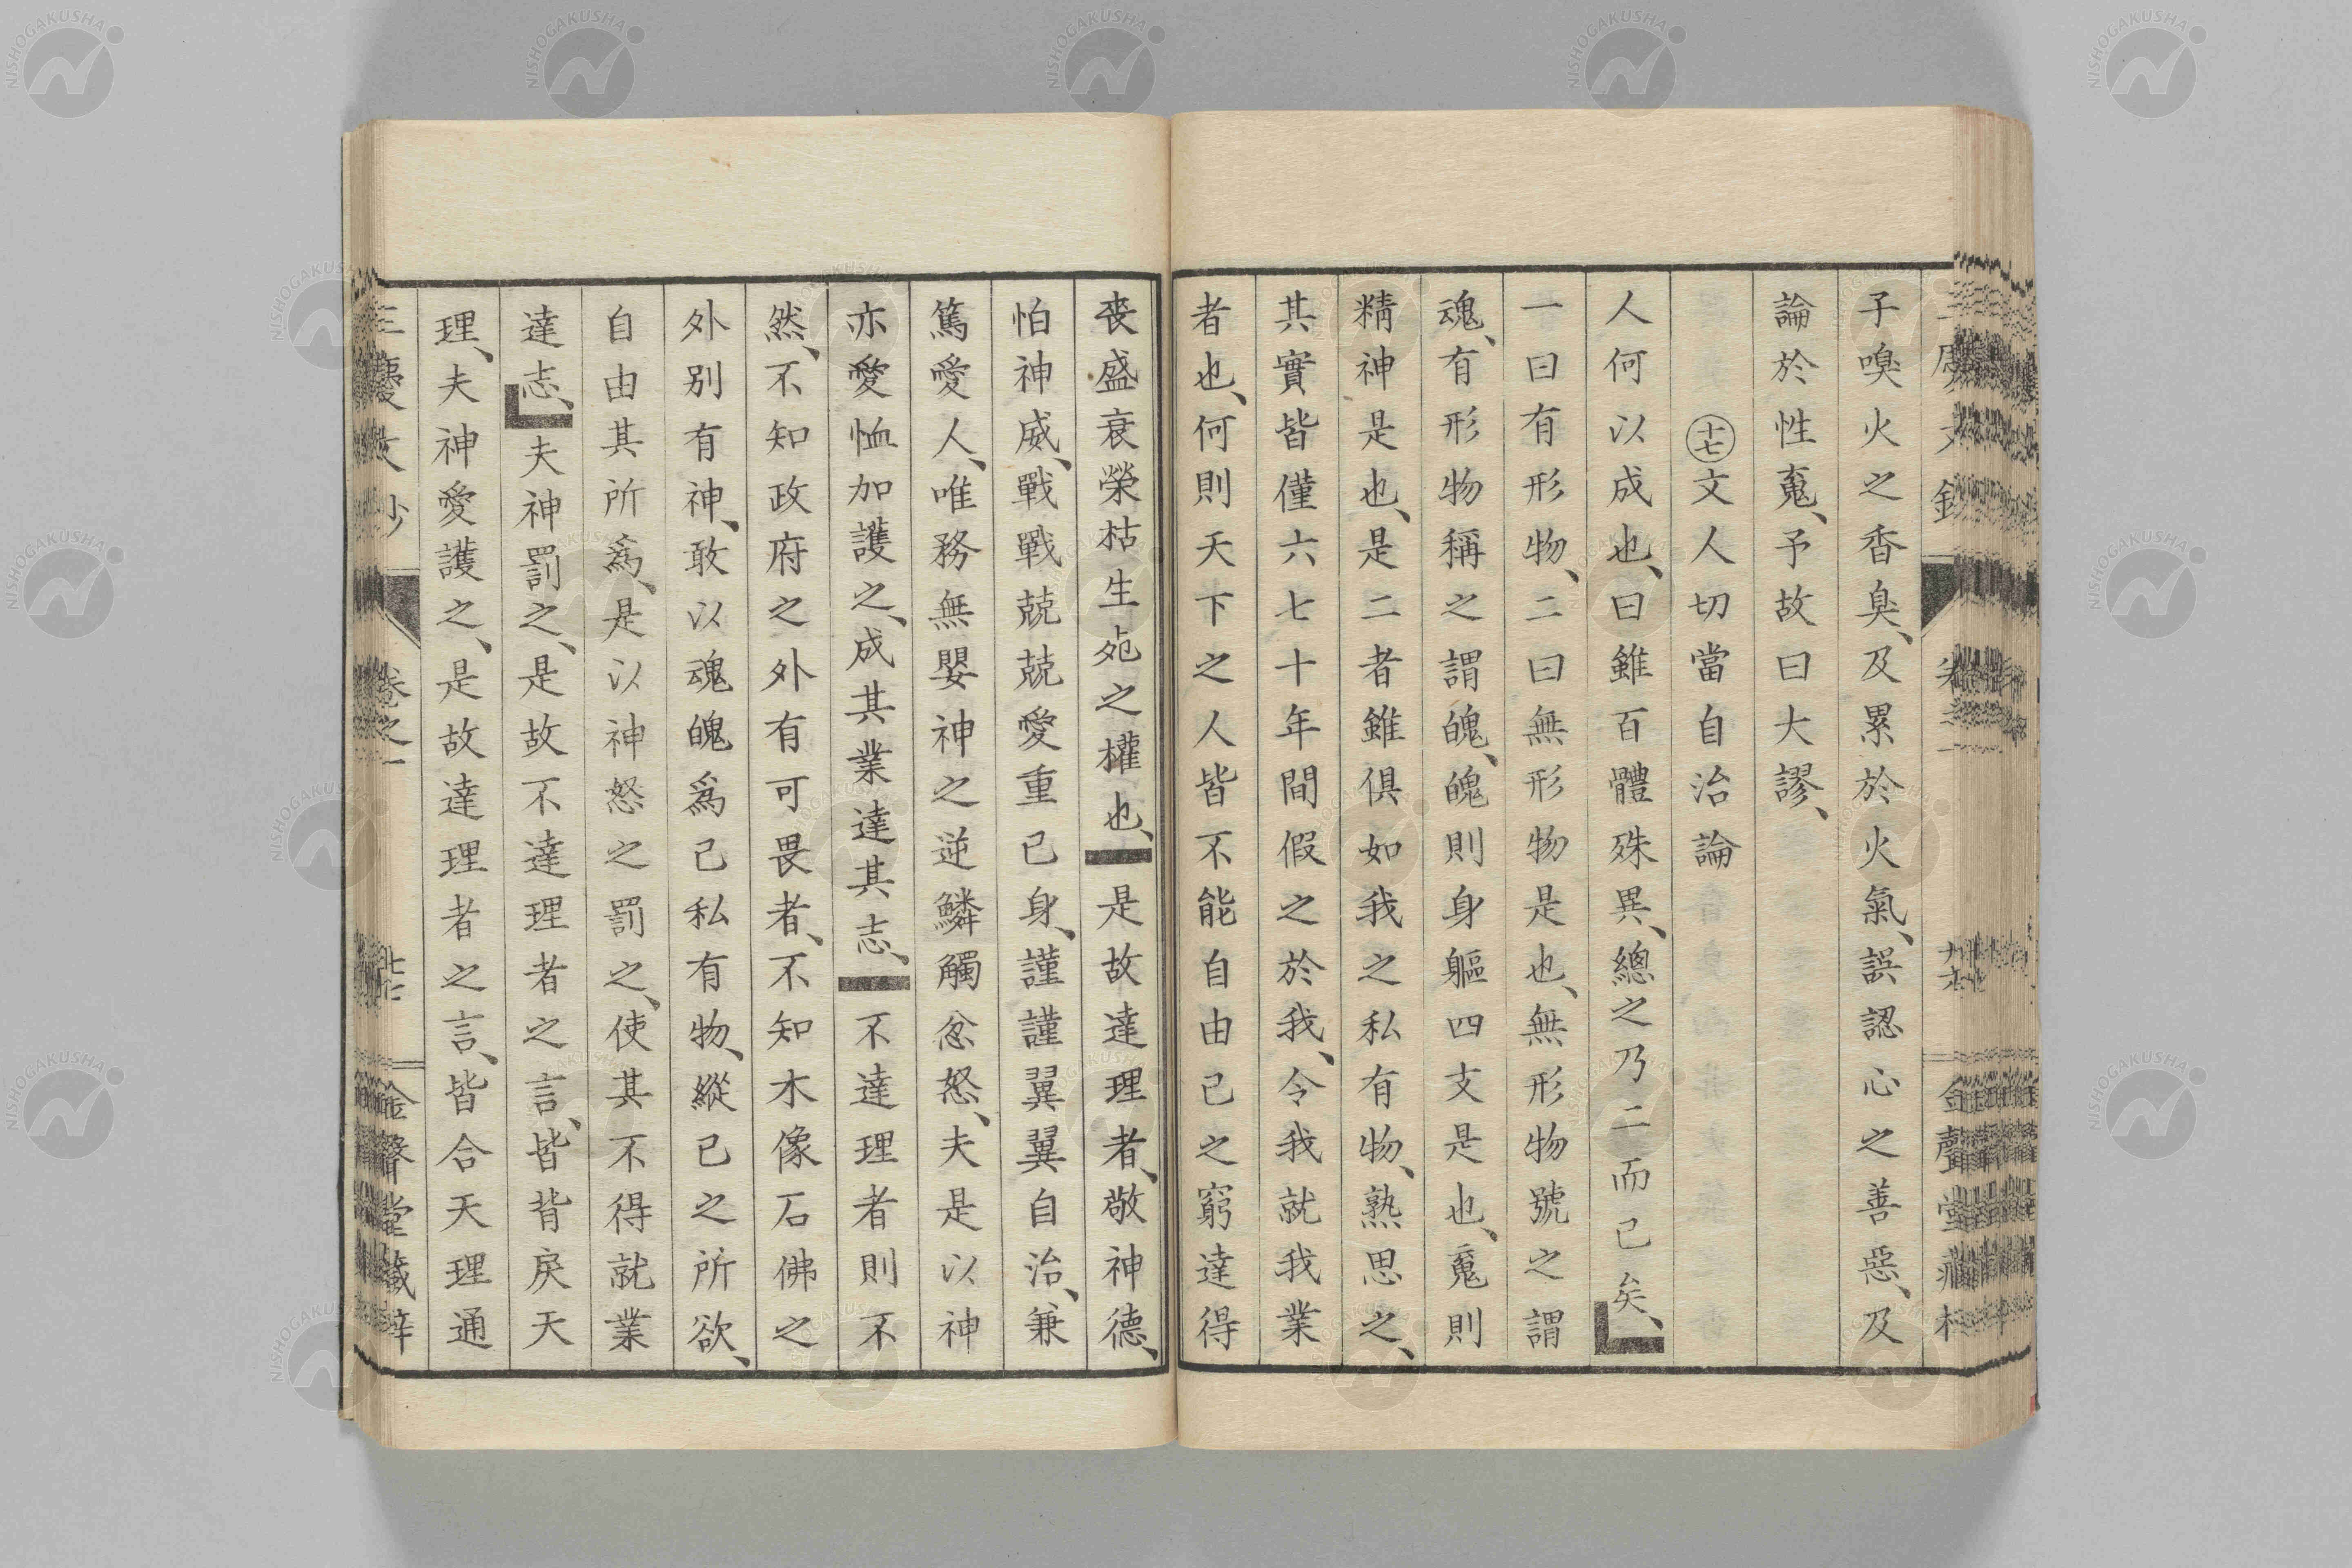 子嗅火之香臭、及累於火氣、誤認心之善惡、及
論於性䰟、予故曰大謬、
㊉七文人切當自治論
人何以成也、曰雖百體殊異、總之乃二而已矣、
一曰有形物、二曰無形物是也、無形物號之謂
魂、有形物稱之謂魄、魄則身軀四支是也、䰟則
精神是也、是二者雖俱如我之私有物、熟思之、
其實皆僅六七十年間假之於我、令我就我業
者也、何則天下之人皆不能自由己之窮達得
喪盛衰榮枯生死之權也、是故達理者、敬神德、
怕神威、戰戰兢兢愛重已身、謹謹翼翼自治、兼
篤愛人、唯務無嬰神之逆鱗觸忿怒、夫是以神
亦愛恤加護之、成其業達其志、不達理者則不
然、不知政府之外有可畏者、不知木像石佛之
外別有神、敢以魂魄爲己私有物、縱已之所欲、
自由其所爲、是以神怒之罰之、使其不得就業
達志、夫神罰之、是故不達理者之言、皆背戾天
理、夫神愛護之、是故達理者之言、皆合天理通
卷之一